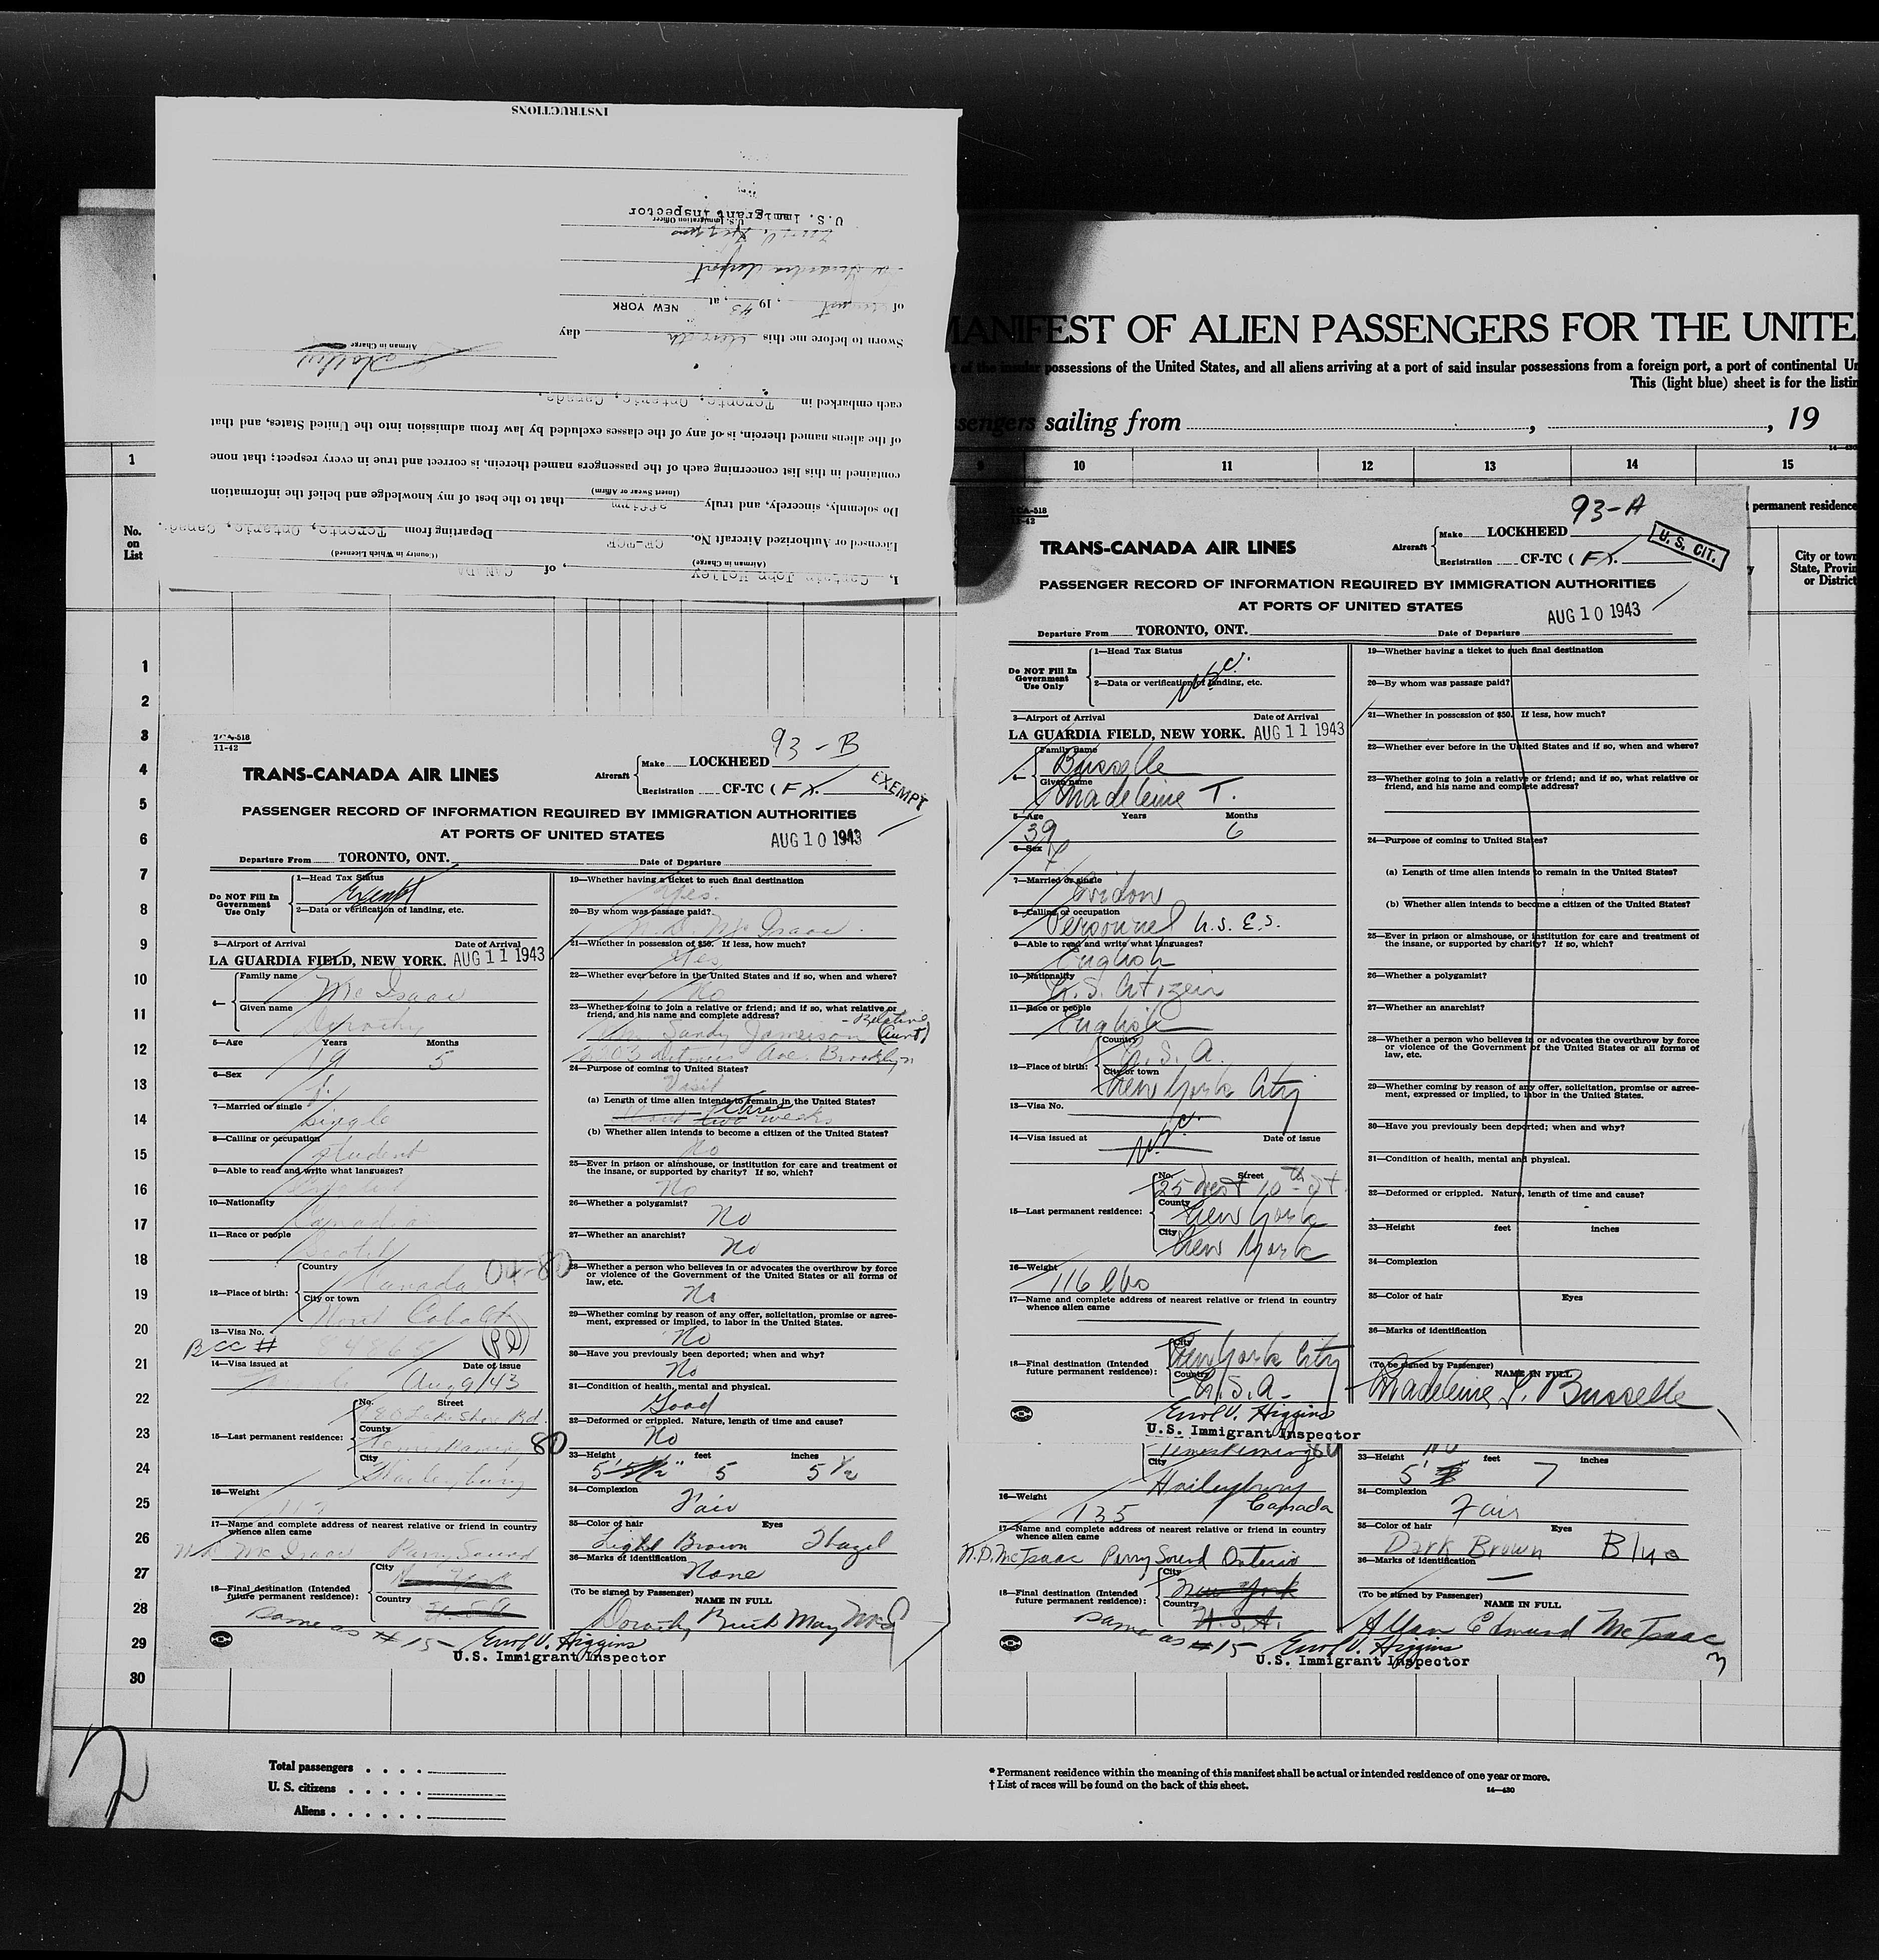 INSTRUCTIONS
I, Captain John Holley, of CANADA
(Airman in Charge) (Country in Which Licensed)
Licensed or Authorized Aircraft No. CF-TCF Departing from Toronto, Ontario, Canada,
Do solemnly, sincerely, and truly affirm that to the best of my knowledge and belief the information
(Insert Swear or Affirm)
contained in this list concerning each of the passengers named therein, is correct and true in every respect; that none
of the aliens named therein, is of any of the classes excluded by law from admission into the United States, and that
each embarked in Toronto, Ontario, Canada.
Airman in Charge
Sworn to before me this day
of August, 1943, at NEW YORK
La Guardia Airport
U.S. Immigration Officer
U.S. Immigrant Inspector
MANIFEST OF ALIEN PASSENGERS FOR THE UNITE
of the insular possessions of the United States, and all aliens arriving at a port of said insular possessions from a foreign port, a port of continental Un
This (light blue) sheet is for the listin
ssengers sailing from , , 19
1 9 10 11 12 13 14 15
No.
on
List
permanent residence
City or town
State, Provin
or District
1
2
3
4
5
6
7
8
9
10
11
12
13
14
15
16
17
18
19
20
21
22
23
24
25
26
27
28
29
30
TCA-518
11-42
93-B
TRANS-CANADA AIR LINES
Aircraft Make LOCKHEED
Registration CF-TC (F).
EXEMPT
PASSENGER RECORD OF INFORMATION REQUIRED BY IMMIGRATION AUTHORITIES
AT PORTS OF UNITED STATES
AUG 10 1943
Departure From TORONTO, ONT. Date of Departure
Do NOT Fill In
Government
Use Only
1—Head Tax Status
Exempt
2—Data or verification of landing, etc.
3—Airport of Arrival Date of Arrival
LA GUARDIA FIELD, NEW YORK. AUG 11 1943
4— Family name
McIsaac
Given name
Dorothy
5—Age Years Months
19 5
6—Sex
f.
7—Married or single
Single
8—Calling or occupation
Student
9—Able to read and write what languages?
English
10—Nationality
Canadian
11—Race or people
Scotch
12—Place of birth: Country
Canada 04-80
City or town
North Cobalt
13—Visa No.
BCC # 84865
14—Visa issued at Date of issue
Aug 9/43
15—Last permanent residence: No. Street
Lake Shore Rd.
County
Temiskaming 80
City
Haileybury
16—Weight
17—Name and complete address of nearest relative or friend in country
whence alien came
McIsaac Parry Sound
18—Final destination (Intended
future permanent residence): City
New York
Country
U.S.A.
Same as # 15
Errol V. Higgins
U.S. Immigrant Inspector
19—Whether having a ticket to such final destination
Yes.
20—By whom was passage paid?
McIsaac.
21—Whether in possession of $50. If less, how much?
Yes
22—Whether ever before in the United States and if so, when and where?
No
23—Whether going to join a relative or friend; and if so, what relative or
friend, and his name and complete address?
- Relative
Sandy Jameison (Aunt)
Ave. Brooklyn
24—Purpose of coming to United States?
Visit
(a) Length of time alien intends to remain in the United States?
About two three weeks
(b) Whether alien intends to become a citizen of the United States?
No
25—Ever in prison or almshouse, or institution for care and treatment of
the insane, or supported by charity? If so, which?
No
26—Whether a polygamist?
No
27—Whether an anarchist?
No
28—Whether a person who believes in or advocates the overthrow by force
or violence of the Government of the United States or all forms of
law, etc.
No
29—Whether coming by reason of any offer, solicitation, promise or agree-
ment, expressed or implied, to labor in the United States.
No
30—Have you previously been deported; when and why?
No
31—Condition of health, mental and physical.
Good
32—Deformed or crippled. Nature, length of time and cause?
No
33—Height feet inches
5 5 1/2
34—Complexion
Fair
35—Color of hair Eyes
Light Brown Hazel
36—Marks of identification
None
(To be signed by Passenger) NAME IN FULL
Dorothy Ruth May
TCA-518
12-42
93-A
TRANS-CANADA AIR LINES
Aircraft Make LOCKHEED
Registration CF-TC (F).
U. S. CIT.
PASSENGER RECORD OF INFORMATION REQUIRED BY IMMIGRATION AUTHORITIES
AT PORTS OF UNITED STATES
AUG 10 1943
Departure From TORONTO, ONT. Date of Departure
Do NOT Fill In
Government
Use Only
1—Head Tax Status
U.S.C.
2—Data or verification of landing, etc.
3—Airport of Arrival Date of Arrival
LA GUARDIA FIELD, NEW YORK. AUG 11 1943
4— Family name
Busselle
Given name
Madeleine T.
5—Age Years Months
39 6
6—Sex
f
7—Married or single
Widow
8—Calling or occupation
Personnel U.S.E.S.
9—Able to read and write what languages?
English
10—Nationality
U.S. Citizen
11—Race or people
English
12—Place of birth: Country
U.S.A.
City or town
New York City
13—Visa No.
14—Visa issued at Date of issue
U.S.C.
15—Last permanent residence: No. Street
25 West 10th St.
County
New York
City
New York
16—Weight
116 lbs
17—Name and complete address of nearest relative or friend in country
whence alien came
18—Final destination (Intended
future permanent residence): City
New York City
Country
U.S.A.
Errol V. Higgins
U.S. Immigrant Inspector
19—Whether having a ticket to such final destination
20—By whom was passage paid?
21—Whether in possession of $50. If less, how much?
22—Whether ever before in the United States and if so, when and where?
23—Whether going to join a relative or friend; and if so, what relative or
friend, and his name and complete address?
24—Purpose of coming to United States?
(a) Length of time alien intends to remain in the United States?
(b) Whether alien intends to become a citizen of the United States?
25—Ever in prison or almshouse, or institution for care and treatment of
the insane, or supported by charity? If so, which?
26—Whether a polygamist?
27—Whether an anarchist?
28—Whether a person who believes in or advocates the overthrow by force
or violence of the Government of the United States or all forms of
law, etc.
29—Whether coming by reason of any offer, solicitation, promise or agree-
ment, expressed or implied, to labor in the United States.
30—Have you previously been deported; when and why?
31—Condition of health, mental and physical.
32—Deformed or crippled. Nature, length of time and cause?
33—Height feet inches
34—Complexion
35—Color of hair Eyes
36—Marks of identification
(To be signed by Passenger) NAME IN FULL
Madeleine T. Busselle
Temiskaming 80
City
Haileybury
Canada
16—Weight
135
17—Name and complete address of nearest relative or friend in country
whence alien came
McIsaac Parry Sound Ontario
18—Final destination (Intended
future permanent residence): City
New York
Country
U.S.A.
Same as # 15
Errol V. Higgins
U.S. Immigrant Inspector
No
33—Height feet inches
5' 7
34—Complexion
Fair
35—Color of hair Eyes
Dark Brown Blue
36—Marks of identification
—
(To be signed by Passenger) NAME IN FULL
Allan Edmund McIsaac
3
2
Total passengers . . . .
U. S. citizens . . . . .
Aliens . . . . . .
* Permanent residence within the meaning of this manifest shall be actual or intended residence of one year or more.
† List of races will be found on the back of this sheet.
14—430